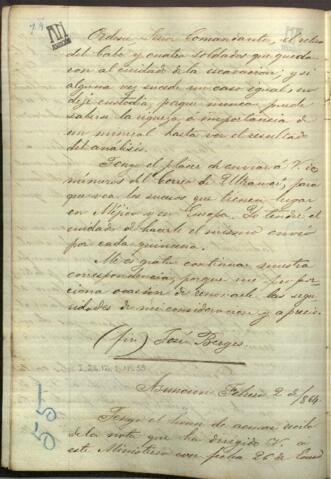 74
Ordene Señor Comandante, el retiro
del Cabo y cuatro soldados que queda
con al cuidado de la escavacion, y si
alguna vez sucede un caso igual, no
deje custodia, porque nunca puede
saberse la riqueza o importancia de
un mineral hasta ver el resultado
del analisis.
Tengo el placer de enviar á V.
números del Correo de Ultramar, para
que vea los sucesos que tienen lugar
en Méjico y en Europa. Yo tendré el
cuidado de hacerle el mismo envio
por cada quincena.
Me es grato continuar nuestra
correspondencia, porque me propor-
ciona ocasion de renovarle las segu-
ridades de mi consideracion y aprecio.
(fir.) José Berges.
Asuncion Febrero 2 de 1864.
Tengo el honor de acusar recibo
de la nota que ha dirigido V. á
este Ministerio con fecha 26 de Enero
I-22,12,1, Nº 59
55